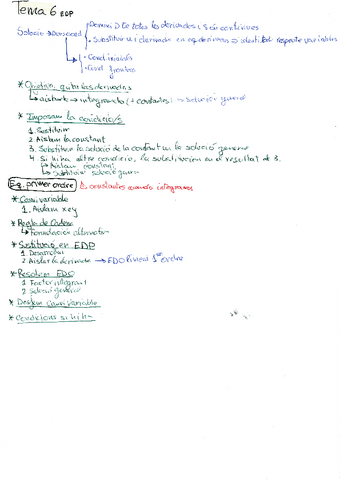 Tema 6 EDP
Solució General
Domini D te totes les derivades i són continues
Substituir u i derivades en eq
identitat respecte variables
Cond inicials
Cond frontera
* Objectiu, quitar les derivades
aïllarlo → integrando (+ constantes) → solució general
* Imposam la condició/s
1. Sustituir
2. Aïllam la constant
3. Substituir la solució de la constant en la solució general
4. Si hi ha altre condició, la substituim en el resultat de 3.
Aïllam constant
Substituir solució general
Eq. primer ordre
constantes cuando integramos
* Canvi variable
1. Aïslam x e y
* Regla de Cadena
Formulación alternativa
* Sustitució en EDP
1. Desarrollar
2. Aïslar la derivada → EDO lineal 1er ordre
* Resolem EDO
1. Factor integrant
2. Solució general
* Desfem Canvi Variable
* Condicions si hi ha